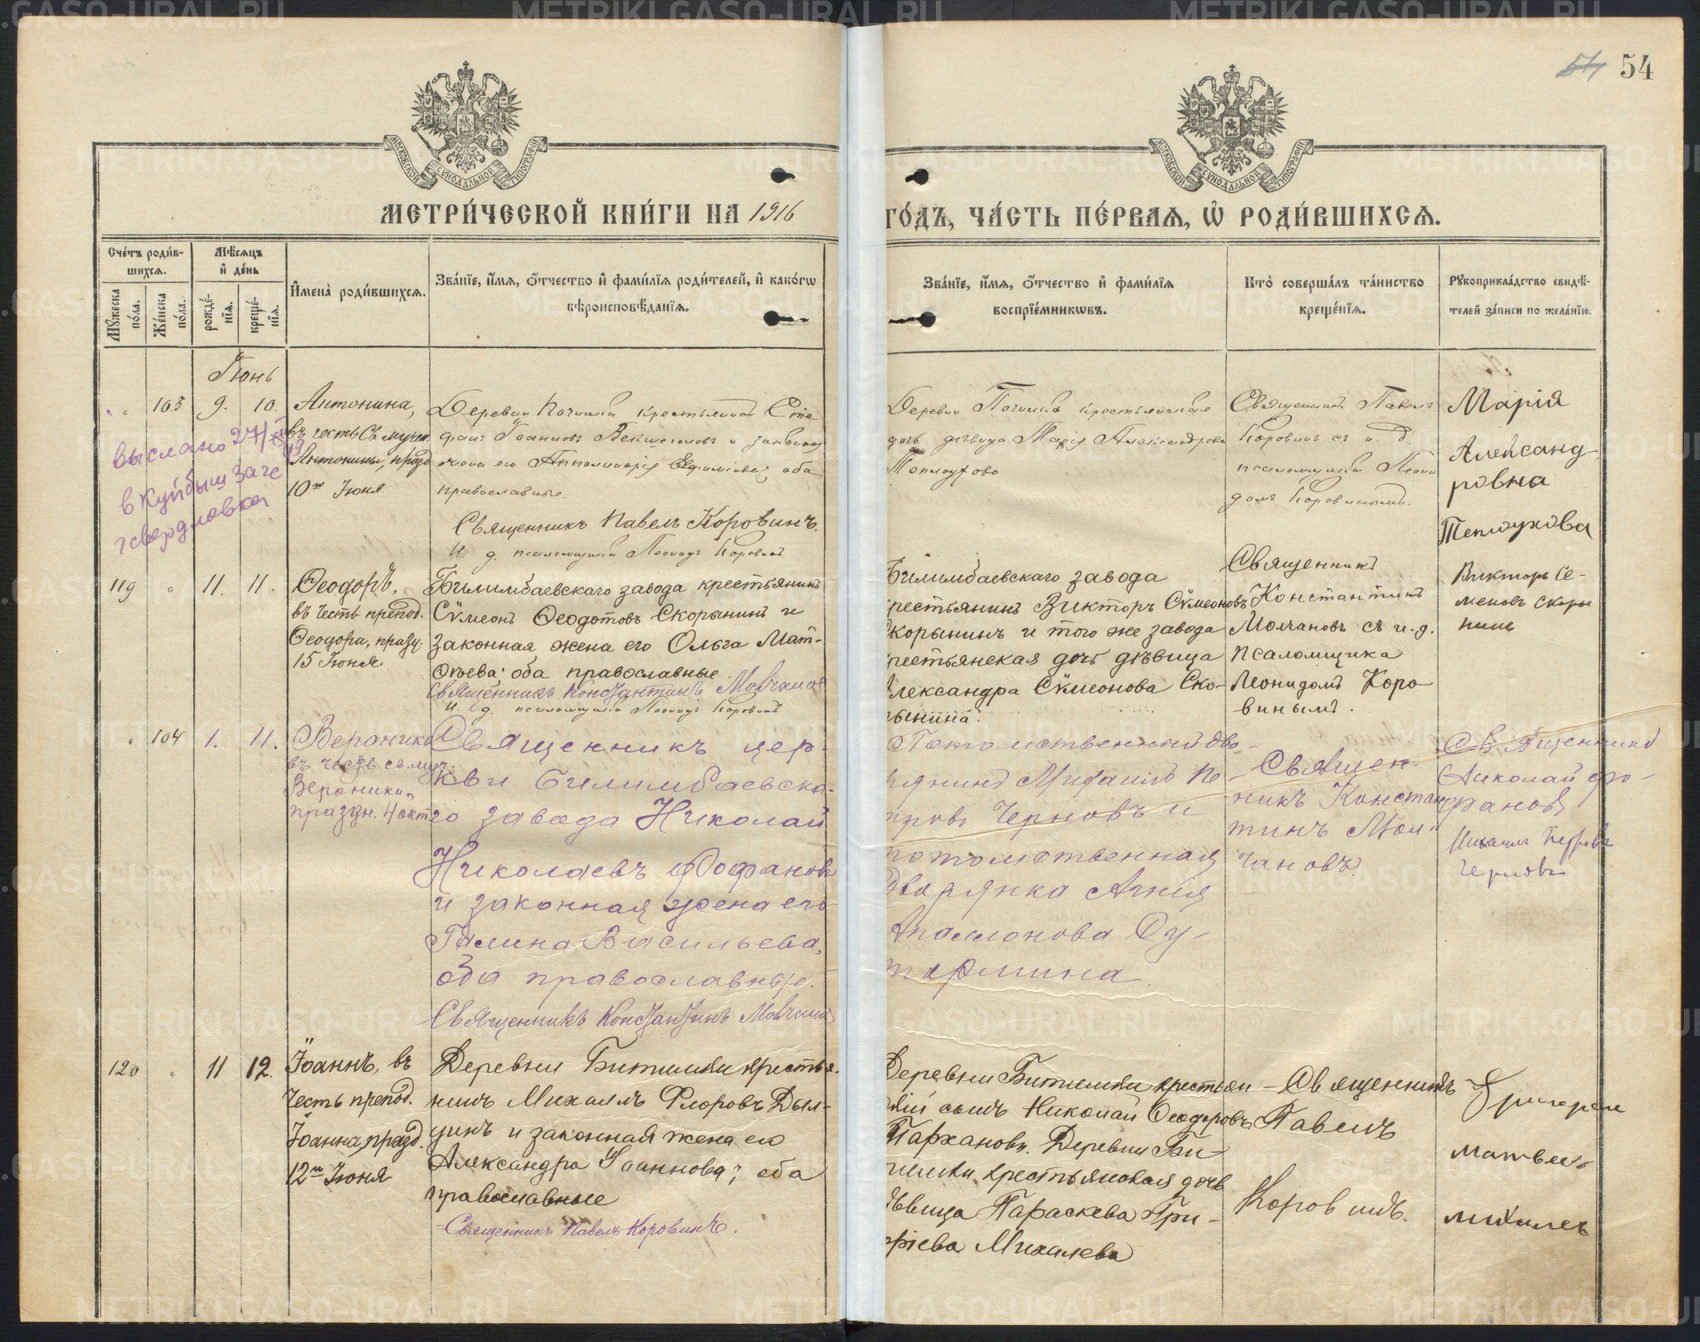 54 54
МЕТРИ́ЧЕСКОЙ КНИ́ГИ НА 1916
ГО́ДЪ, ЧА́СТЬ ПЕ́РВАЯ, Ѡ҆ РОДИ́ВШИХСЯ.
Сче́тъ роди́в-
шихся.
Мѣ́сяцъ
и҆ де́нь
Мꙋ́жеска
по́ла.
Же́нска
по́ла.
рожде́-
нїя.
креще́-
нїя.
И҆мена̀ роди́вшихся.
Зва́нїе, и҆́мя, ѻ҆́тчество и҆ фами́лїя роди́телей, и҆ како́гѡ
вѣроисповѣ́данїя.
Зва́нїе, и҆́мя, ѻ҆́тчество и҆ фами́лїя
воспрїе́мникѡвъ.
Кто̀ соверша́лъ та́инство
креще́нїя.
Рꙋкоприкла́дство свидѣ́-
телей за́писи по жела́нїю.
Іюнь
103 9. 10.
Антонина,
въ честь Св. мучен.
Антонины, празд.
10го Іюня
Деревни Починка крестьянинъ Сте
фанъ Іоанновъ и законная
жена его Апполинарія Евфиміева; оба
православные.
Священникъ Павелъ Коровинъ.
И. д. псаломщика Леонидъ Коровинъ
Деревни Починка крестьянская
дочь девица Марія Александрова
Теплоухова
Священникъ Павелъ
Коровинъ съ и. д.
псаломщика Леони
домъ Коровинымъ.
Марія
Александ-
ровна
Теплоухова
выслано 27/
в Куйбыш Заге
г свердловка
119 " 11. 11.
Ѳеодоръ,
въ честь препод.
Ѳеодора, празд.
15 Іюня.
Билимбаевскаго завода крестьянинъ
Сѵмеонъ Ѳеодотовъ Скорынинъ и
законная жена его Ольга Мат-
ѳеева; оба православные.
Священникъ Константинъ Молчановъ
И. д. псаломщика Леонидъ Коровинъ
Билимбаевскаго завода
крестьянинъ Викторъ Сѵмеоновъ
Скорынинъ и того же завода
крестьянская дочь дѣвица
Александра Сѵмеонова Ско-
рынина.
Священникъ
Константинъ
Молчановъ съ и. д.
псаломщика
Леонидомъ Коро
винымъ.
Викторъ Се-
меновъ Скоры
нинъ
" 104 1. 11.
Вероника
въ честь св. муч.
Вероники,
праздн. 4 окт.
Священникъ цер-
кви Билимбаевска-
го завода Николай
Николаевъ Фофановъ
и законная жена его
Галина Васильева,
оба православные.
Священникъ Константинъ Молчановъ
Потомственный дво-
рянинъ Михаилъ Пе
тровъ Черновъ и
потомственная
дворянка Агнія
Аполлонова Су-
тормина.
Священ-
никъ Констан
тинъ Мол-
чановъ.
Священникъ
Николай Фо-
фановъ
Михаилъ Петровъ
Черновъ
120 " 11 12.
Іоаннъ, въ
честь препод.
Іоанна, празд.
12го Іюня
Деревни Битимки крестья-
нинъ Михаилъ Флоровъ Дыл-
динъ и законная жена его
Александра Іоаннова; оба
православные
Священникъ Павелъ Коровинъ.
Деревни Битимки крестьян-
скій сынъ Николай Ѳеодоровъ
Пархановъ. Деревни Би-
тимки крестьянская дочь
дѣвица Параскева Гри-
горіева Михалева
Священникъ
Павелъ
Коровинъ.
Григореи
матвеев
михалев